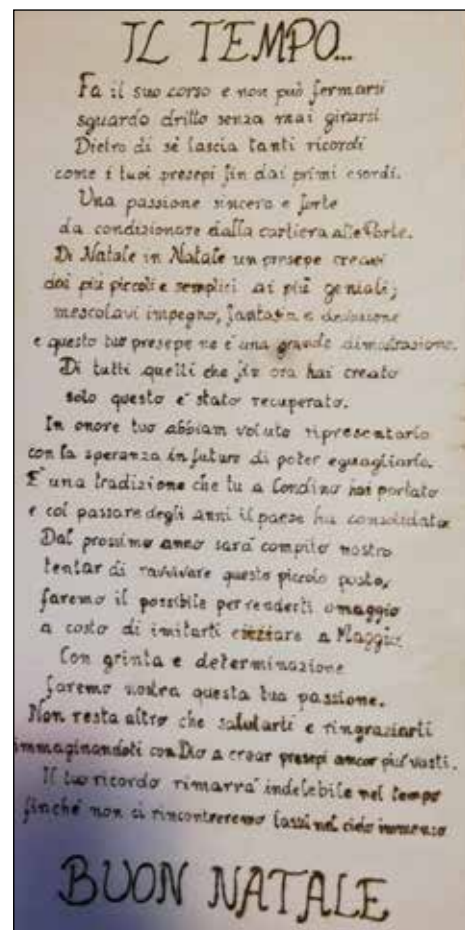 IL TEMPO...
Fa il suo corso e non può fermarsi
sguardo dritto senza mai girarsi
Dietro di sè lascia tanti ricordi
come i tuoi presepi fin dai primi esordi.
Una passione sincera e forte
da condizionare dalla cartiera alle Porte.
Di Natale in Natale un presepe creavi
dai più piccoli e semplici ai più geniali;
mescolavi impegno, fantasia e dedizione
e questo tuo presepe ne è una grande dimostrazione.
Di tutti quelli che fin ora hai creato
solo questo è stato recuperato.
In onore tuo abbiam voluto ripresentarlo
con la speranza in futuro di poter eguagliarlo.
E' una tradizione che tu a Condino hai portato
e col passare degli anni il paese ha consolidato
Dal prossimo anno sarà compito nostro
tentar di ravvivare questo piccolo posto,
faremo il possibile per renderti omaggio
a costo di imitarti a Maggio.
Con grinta e determinazione
faremo nostra questa tua passione.
Non resta altro che salutarti e ringraziarti
immaginandoti con Dio a crear presepi ancor più vasti.
Il tuo ricordo rimarrà indelebile nel tempo
finchè non ci rincontreremo lassù nel cielo immenso
BUON NATALE